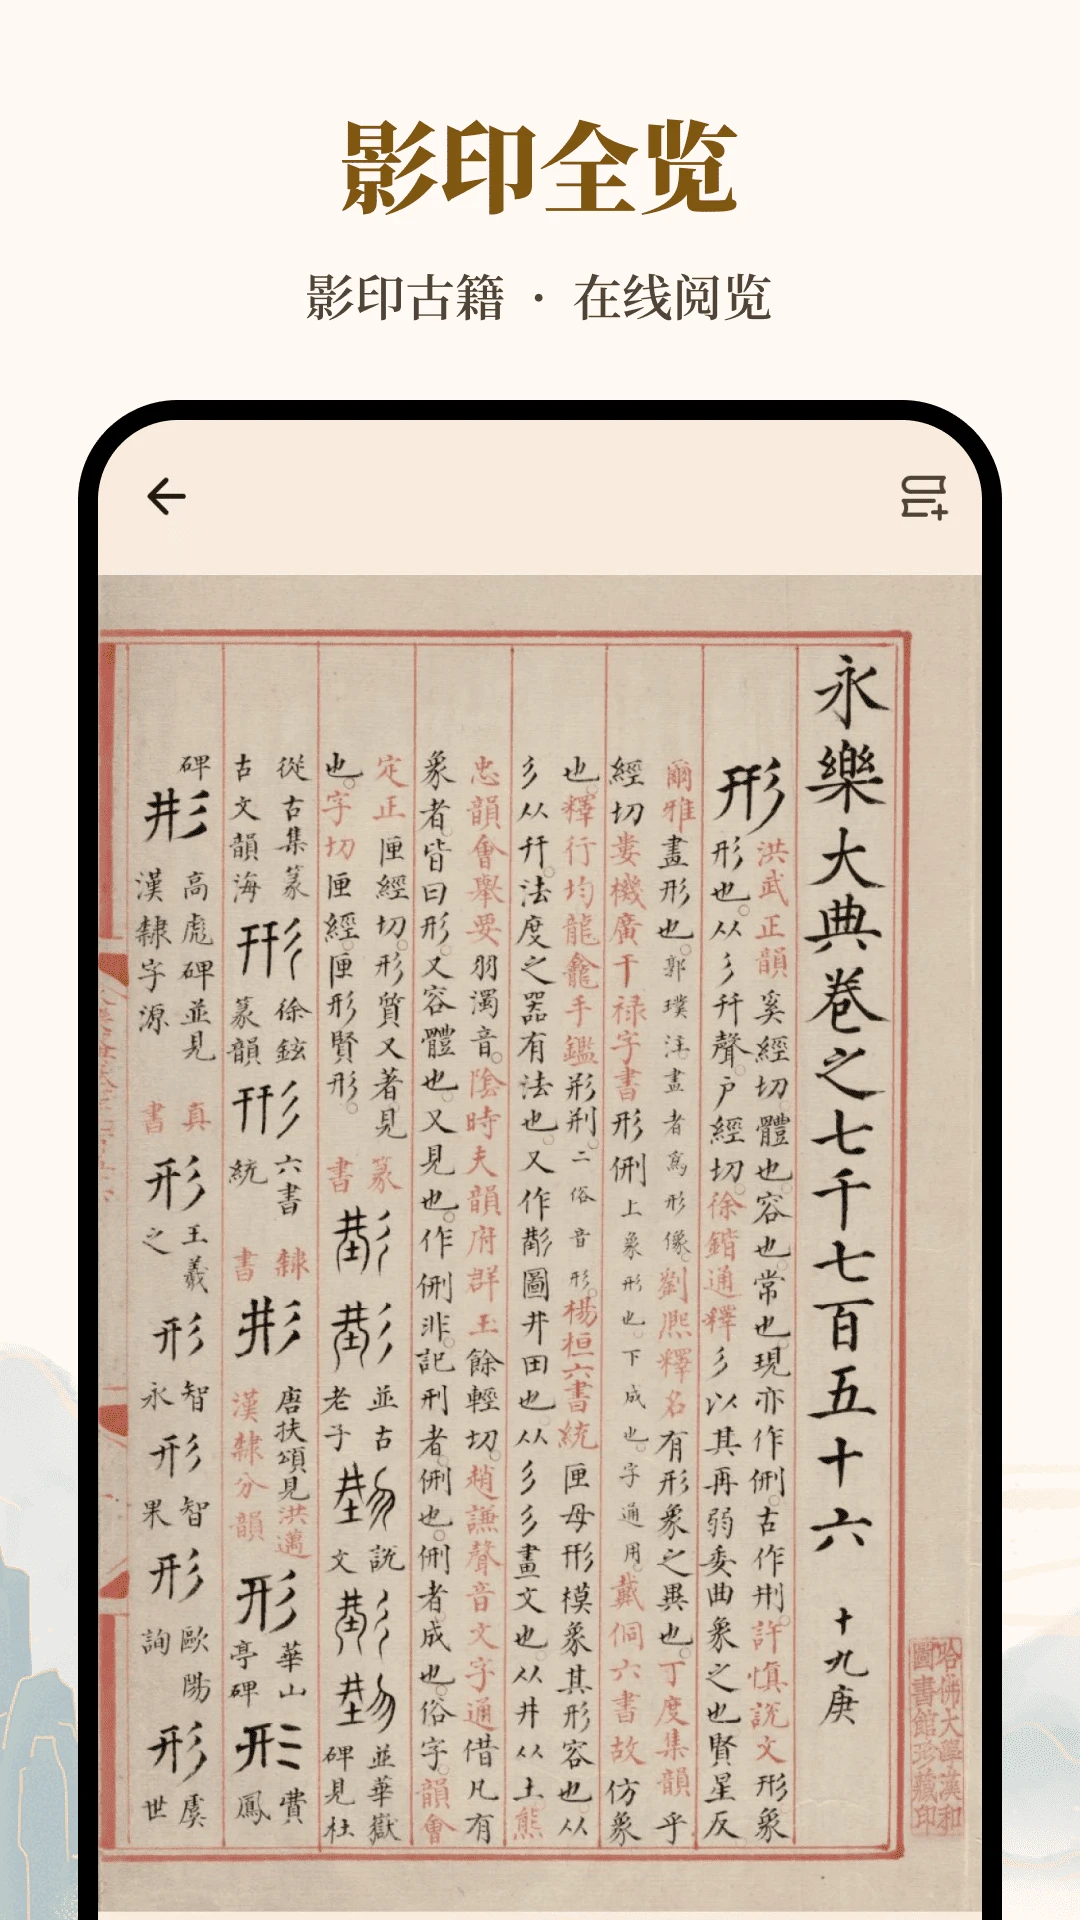 影印全览
影印古籍 · 在线阅览
永樂大典卷之七千七百五十六 十九庚
形
洪武正韻奚經切體也容也常也現亦作侀古作㓝許慎說文形象
形也从彡幵聲户經切徐鍇通釋彡以其再弱委曲象之也賢星反
爾雅畫形也郭璞注畫者爲形像劉熙釋名有形象之異也丁度集韻乎
經切婁機廣干禄字書形侀上象形也下成也字通用戴侗六書故仿象
也釋行均龍龕手鑑形刑二俗音形楊桓六書統匣母形模象其形容也从
彡从幵法度之器有法也又作㓝圖井田也从彡彡畫文也从井从土熊
忠韻會舉要羽濁音陰時夫韻府群玉餘輕切趙謙聲音文字通借凡有
象者皆曰形又容體也又見也作侀非記刑者侀也侀者成也俗字韻會
定正匣經切形質又著見
也字切匣經匣形賢形
篆書
並古老子
說文
並華嶽碑見杜
從古集篆古文韻海
形
徐鉉篆韻
形
六書統
隸書
形
唐扶頌見洪邁漢隸分韻
形
華山亭碑
形
費鳳
碑
形
高彪碑並見漢隸字源
真書
形
王羲之
形
智永
形
智果
形
歐陽詢
形
虞世
哈佛大學漢和
圖書館珍藏印